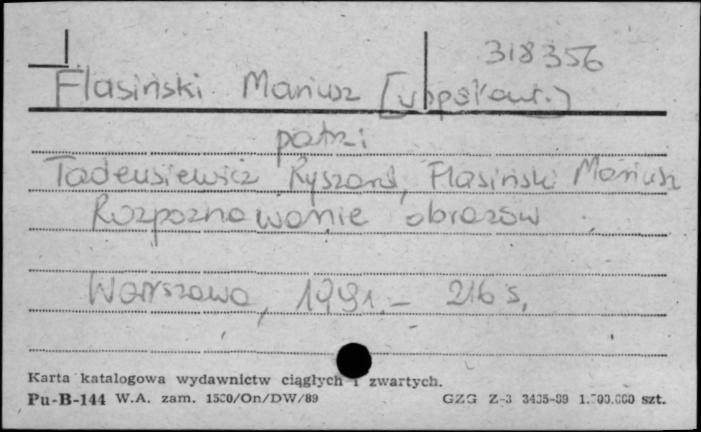 318356
Flasiński Mariusz [współaut.]
patrz
Tadeusiewicz Ryszard, Flasiński Mariusz
Rozpoznawanie obrazów
Warszawa, 1991. – 216 s.
Karta katalogowa wydawnictw ciągłych i zwartych.
Pu-B-144 W.A. zam. 1500/On/DW/89 GZG Z-3 3435-89 1.500.000 szt.